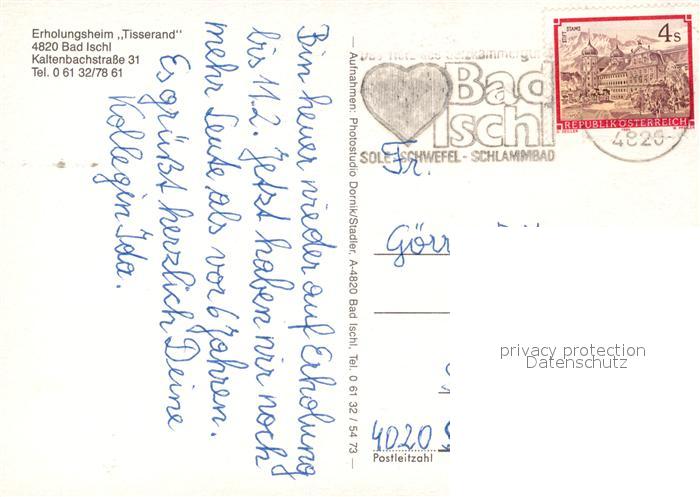 Erholungsheim „Tisserand"
4820 Bad Ischl
Kaltenbachstraße 31
Tel. 0 61 32/78 61
Bin heuer wieder auf Erholung
bis 11.2. Jetzt haben wir noch
mehr Leute als vor 6 Jahren.
Es grüßt herzlich Deine
Kollegin Ida.
— Aufnahmen: Photostudio Dornik/Stadler, A-4820 Bad Ischl, Tel. 0 61 32 / 54 73 —
Das Herz des Salzkammergutes
Bad
Ischl
SOLE-SCHWEFEL-SCHLAMMBAD
4820
STIFT STAMS
4 S
REPUBLIK ÖSTERREICH
Fr.
Görr
4020
Postleitzahl
privacy protection
Datenschutz